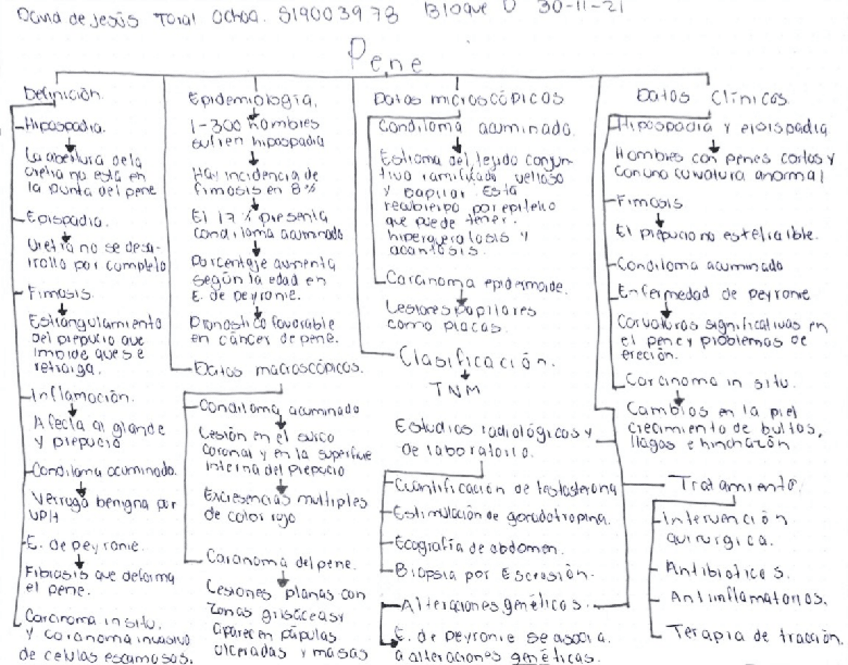 David de Jesús Toral Ochoa. S19003978 Bloque D 30-11-21
Pene
Definición
Hipospadia.
La abertura de la
uretra no está en
la punta del pene
Epispadia.
Uretra no se desa-
rrolla por completo
Fimosis
Estrangulamiento
del prepucio que
impide que se
retraiga.
Inflamación.
Afecta al glande
y prepucio
Condiloma acuminado.
Verruga benigna por
VPH
E. de peyronie.
Fibrosis que deforma
el pene.
Carcinoma in situ.
y carcinoma invasivo
de celulas escamosas.
Epidemiología.
1-300 hombres
sufren hipospadia
Hay incidencia de
fimosis en 8%
El 17% presenta
condiloma acuminado
Porcentaje aumenta
según la edad en
E. de peyronie.
Pronostico favorable
en cáncer de pene.
Datos macroscópicos.
Condiloma acuminado
Lesión en el surco
coronal y en la superficie
interna del prepucio
Excresencias multiples
de color rojo
Carcinoma del pene.
Lesiones planas con
zonas grisáceas y
aparecen pápulas
ulceradas y masas
Datos microscópicos
Condiloma acuminado.
Estroma del tejido conjun-
tivo ramificado velloso
y papilar. Está
recubierto por epitelio
que puede tener.
hiperqueratosis y
acantosis.
Carcinoma epidermoide.
Lesiones papilares
como placas.
Clasificación.
TNM
Estudios radiológicos y
de laboratorio.
Cuantificación de testosterona
Estimulación de gonadotropina.
Ecografía de abdomen.
Biopsia por Escresión.
Alteraciones genéticas.
E. de Peyronie se asocia.
a alteraciones genéticas.
Datos Clínicos
Hipospadia y epispadia
Hombres con penes cortos y
con una curvatura anormal
Fimosis
El prepucio no es retraible.
Condiloma acuminado
Enfermedad de peyronie
Curvaturas significativas en
el pene y problemas de
erección.
Carcinoma in situ.
Cambios en la piel
crecimiento de bultos,
llagas e hinchazón
Tratamiento.
Intervención
quirurgica.
Antibióticos.
Antiinflamatorios.
Terapia de tracción.